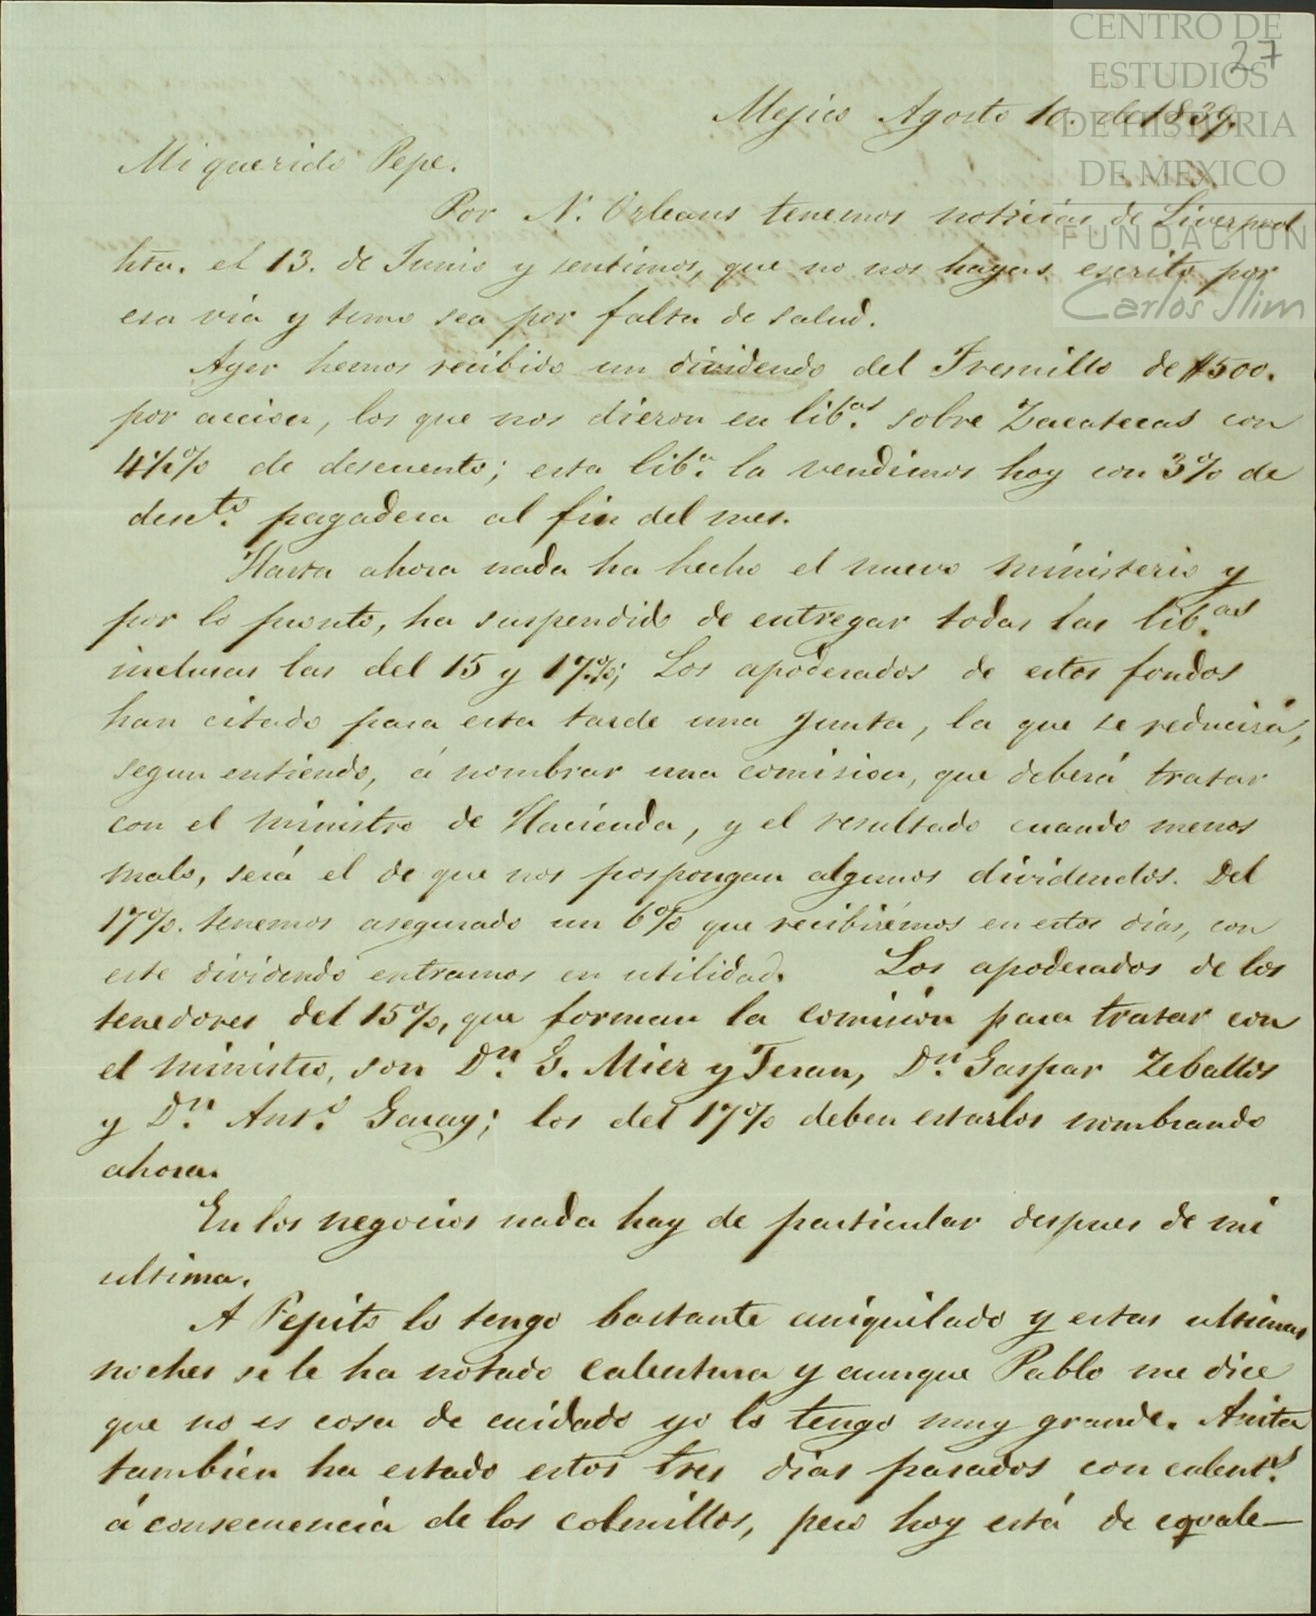 CENTRO DE
27
ESTUDIOS
DE HISTORIA
DE MEXICO
FUNDACION
Carlos Slim
Mejico Agosto 10. de 1839.
Mi querido Pepe.
Por N. Orleans tenemos noticias de Liverpool
hta. el 13. de Junio y sentimos, que no nos hayas escrito por
esa via y temo sea por falta de salud.
Ayer hemos recibido un dividendo del Fresnillo de $500.
por accion, los que nos dieron en lib.as sobre Zacatecas con
4½% de descuento; esta lib.a la vendimos hoy con 3% de
desc.to pagadera al fin del mes.
Hasta ahora nada ha hecho el nuevo ministerio y
por lo pronto, ha suspendido de entregar todas las lib.as
inclusas las del 15 y 17%; Los apoderados de estos fondos
han citado para esta tarde una Junta, la que se reducirá,
segun entiendo, á nombrar una comision, que deberá tratar
con el ministro de Hacienda, y el resultado cuando menos
malo, será el de que nos pospongan algunos dividendos. Del
17%. tenemos asegurado un 6% que recibirémos en estos dias, con
este dividendo entramos en utilidad. Los apoderados de los
tenedores del 15%, que forman la comision para tratar con
el ministro, son D.n G. Mier y Teran, D.n Gaspar Zeballos
y D.n Ant.o Garay; los del 17% deben estarlos nombrando
ahora.
En los negocios nada hay de particular despues de mi
ultima.
A Pepito lo tengo bastante aniquilado y estas ultimas
noches se le ha notado calentura y aunque Pablo me dice
que no es cosa de cuidado yo lo tengo muy grande. Anita
tambien ha estado estos tres dias pasados con calent.s
á consecuencia de los colmillos, pero hoy está de